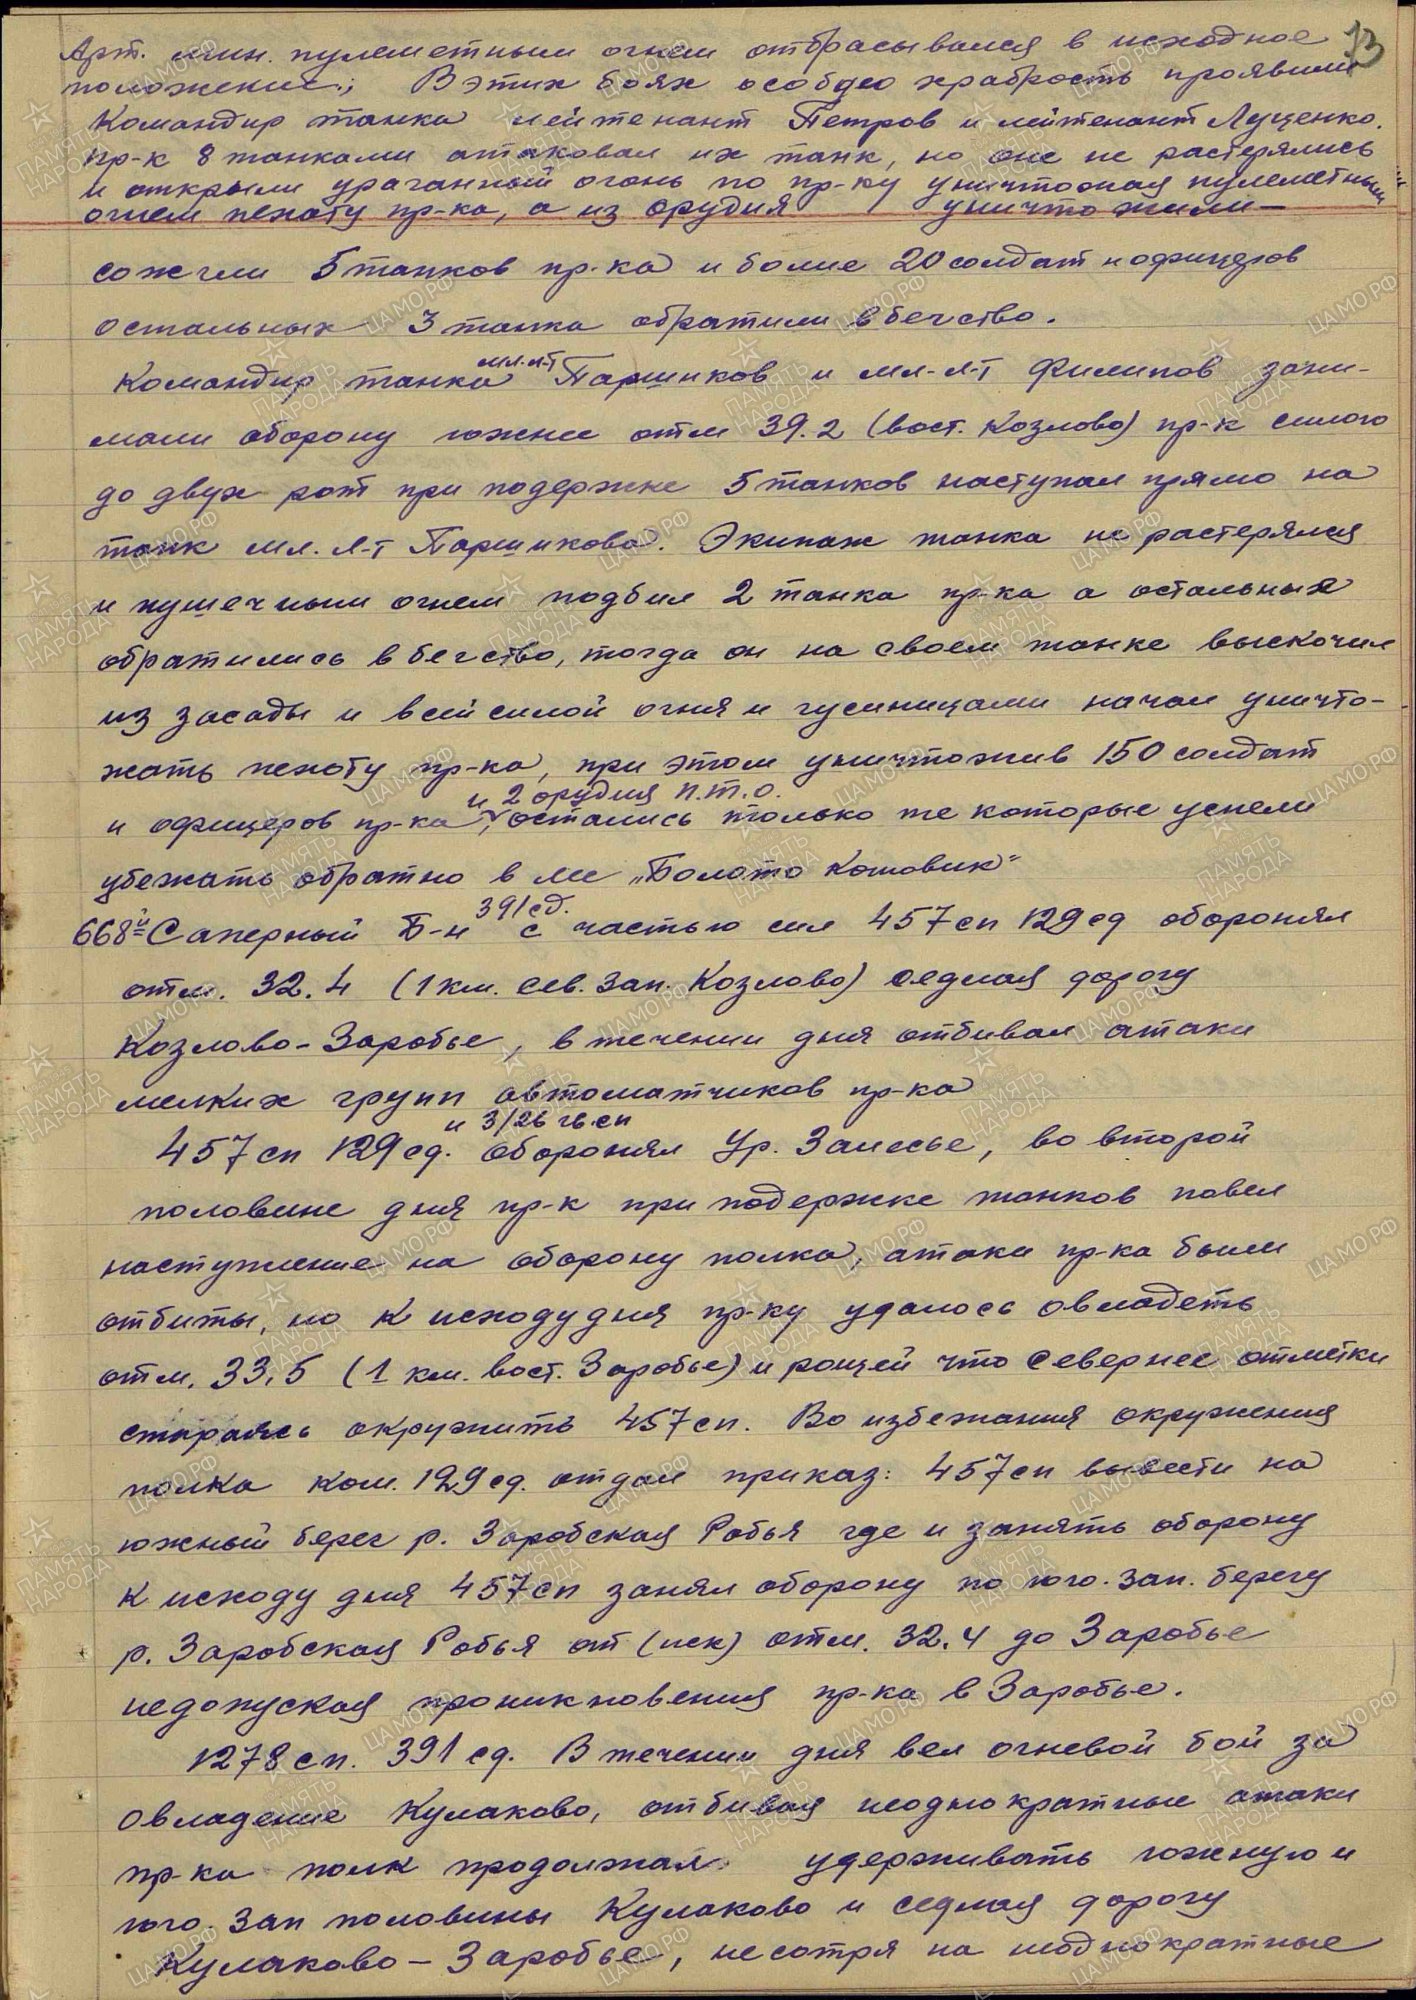 73
Арт. мин. пулеметным огнем отбрасывался в исходное
положение; В этих боях особую храбрость проявили
Командир танка лейтенант Петров и лейтенант Луценко.
Пр-к 8 танками атаковал их танк, но они не растерялись
и открыли ураганный огонь по пр-ку уничтожая пулеметным
огнем пехоту пр-ка, а из орудия уничтожили-
сожгли 5 танков пр-ка и более 20 солдат и офицеров
остальных 3 танка обратили в бегство.
Командир танка мл. л-т Паршиков и мл-л-т Филипов зани-
мали оборону южнее отм 39.2 (вост. Козлово) пр-к силою
до двух рот при подержке 5 танков наступал прямо на
танк мл. л-т Паршикова. Экипаж танка не растерялся
и пушечным огнем подбил 2 танка пр-ка а остальные
обратились в бегство, тогда он на своем танке выскочил
из засады и всей силой огня и гусиницами начал уничто-
жать пехоту пр-ка, при этом уничтожив 150 солдат
и 2 орудия п.т.о.
и офицеров пр-ка, остались только те которые успели
убежать обратно в лес „Болото Коковик"
668й Саперный Б-н 391 сд. с частью сил 457 сп 129 сд оборонял
отм. 32.4 (1 км. сев. зап. Козлово) седлая дорогу
Козлово-Заробье, в течении дня отбивал атаки
мелких групп автоматчиков пр-ка
и 3/26 гв.сп
457 сп 129 сд. оборонял Ур. Залесье, во второй
половине дня пр-к при подержке танков повел
наступление на оборону полка, атаки пр-ка были
отбиты, но к исходу дня пр-ку удалось овладеть
отм. 33,5 (1 км. вост. Заробье) и рощей что севернее отметки
стараясь окружить 457 сп. Во избежания окружения
полка ком. 129 сд. отдал приказ: 457 сп вывести на
южный берег р. Заробская Робья где и занять оборону
к исходу дня 457 сп занял оборону по юго. зап. берегу
р. Заробская Робья от (иск) отм. 32.4 до Заробье
недопуская проникновения пр-ка в Заробье.
1278 сп. 391 сд. В течении дня вел огневой бой за
овладение Кулаково, отбивая неоднократные атаки
пр-ка полк продолжал удерживать южную и
юго. зап половины Кулаково и седлая дорогу
Кулаково-Заробье, несотря на неоднократные